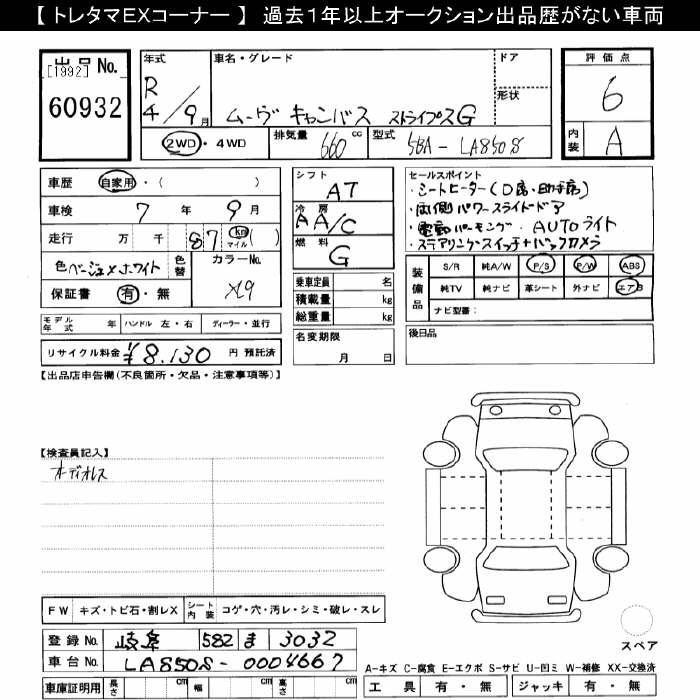 【 トレタマEXコーナー 】 過去1年以上オークション出品歴がない車両
出品 No.
[1992]
60932
年式
R
4/9月
車名・グレード
ムーヴ キャンバス ストライプスG
ドア
形状
評価点
6
内装
A
2WD・4WD
排気量
660 cc
型式
5BA-LA850S
車歴 自家用・( )
車検 7 年 9 月
走行 万 千 87 km マイル ( )
色 ベージュ×ホワイト
色替
カラーNo.
X19
保証書 有・無
モデル年式 年
ハンドル 左・右
ディーラー・並行
リサイクル料金 ¥8,130 円 預託済
シフト
AT
冷房
AA/C
燃料
G
乗車定員 名
積載量 kg
総重量 kg
名変期限
月 日
セールスポイント
・シートヒーター(D席・助手席)
・両側パワースライドドア
・電動パーキング ・AUTOライト
・ステアリングスイッチ+バックカメラ
装備品
S/R 純A/W P/S P/W ABS
純TV 純ナビ 革シート 外ナビ エアB
ナビ型番:
後日品
【出品店申告欄(不良箇所・欠品・注意事項等)】
【検査員記入】
オーディオレス
FW キズ・トビ石・割レX
シート内装 コゲ・穴・汚レ・シミ・破レ・スレ
登録 No. 岐阜 582 ま 3032
車台 No. LA850S-0004667
車庫証明用 長さ cm 幅 cm 高さ cm
スペア
A-キズ C-腐食 E-エクボ S-サビ U-凹ミ W-補修 XX-交換済
工具 有・無 ジャッキ 有・無